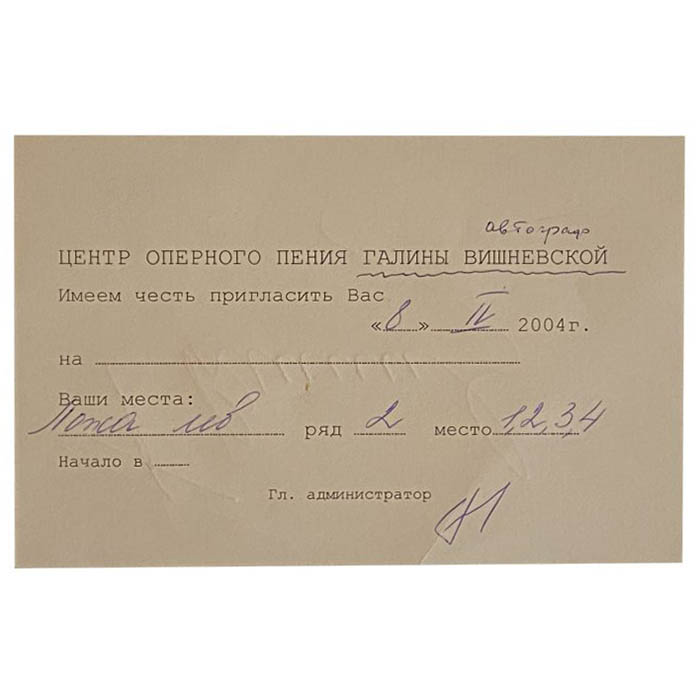 автограф
ЦЕНТР ОПЕРНОГО ПЕНИЯ ГАЛИНЫ ВИШНЕВСКОЙ
Имеем честь пригласить Вас
«8» II 2004г.
на
Ваши места:
Ложа лев ряд 2 место 1,2,3,4
Начало в
Гл. администратор